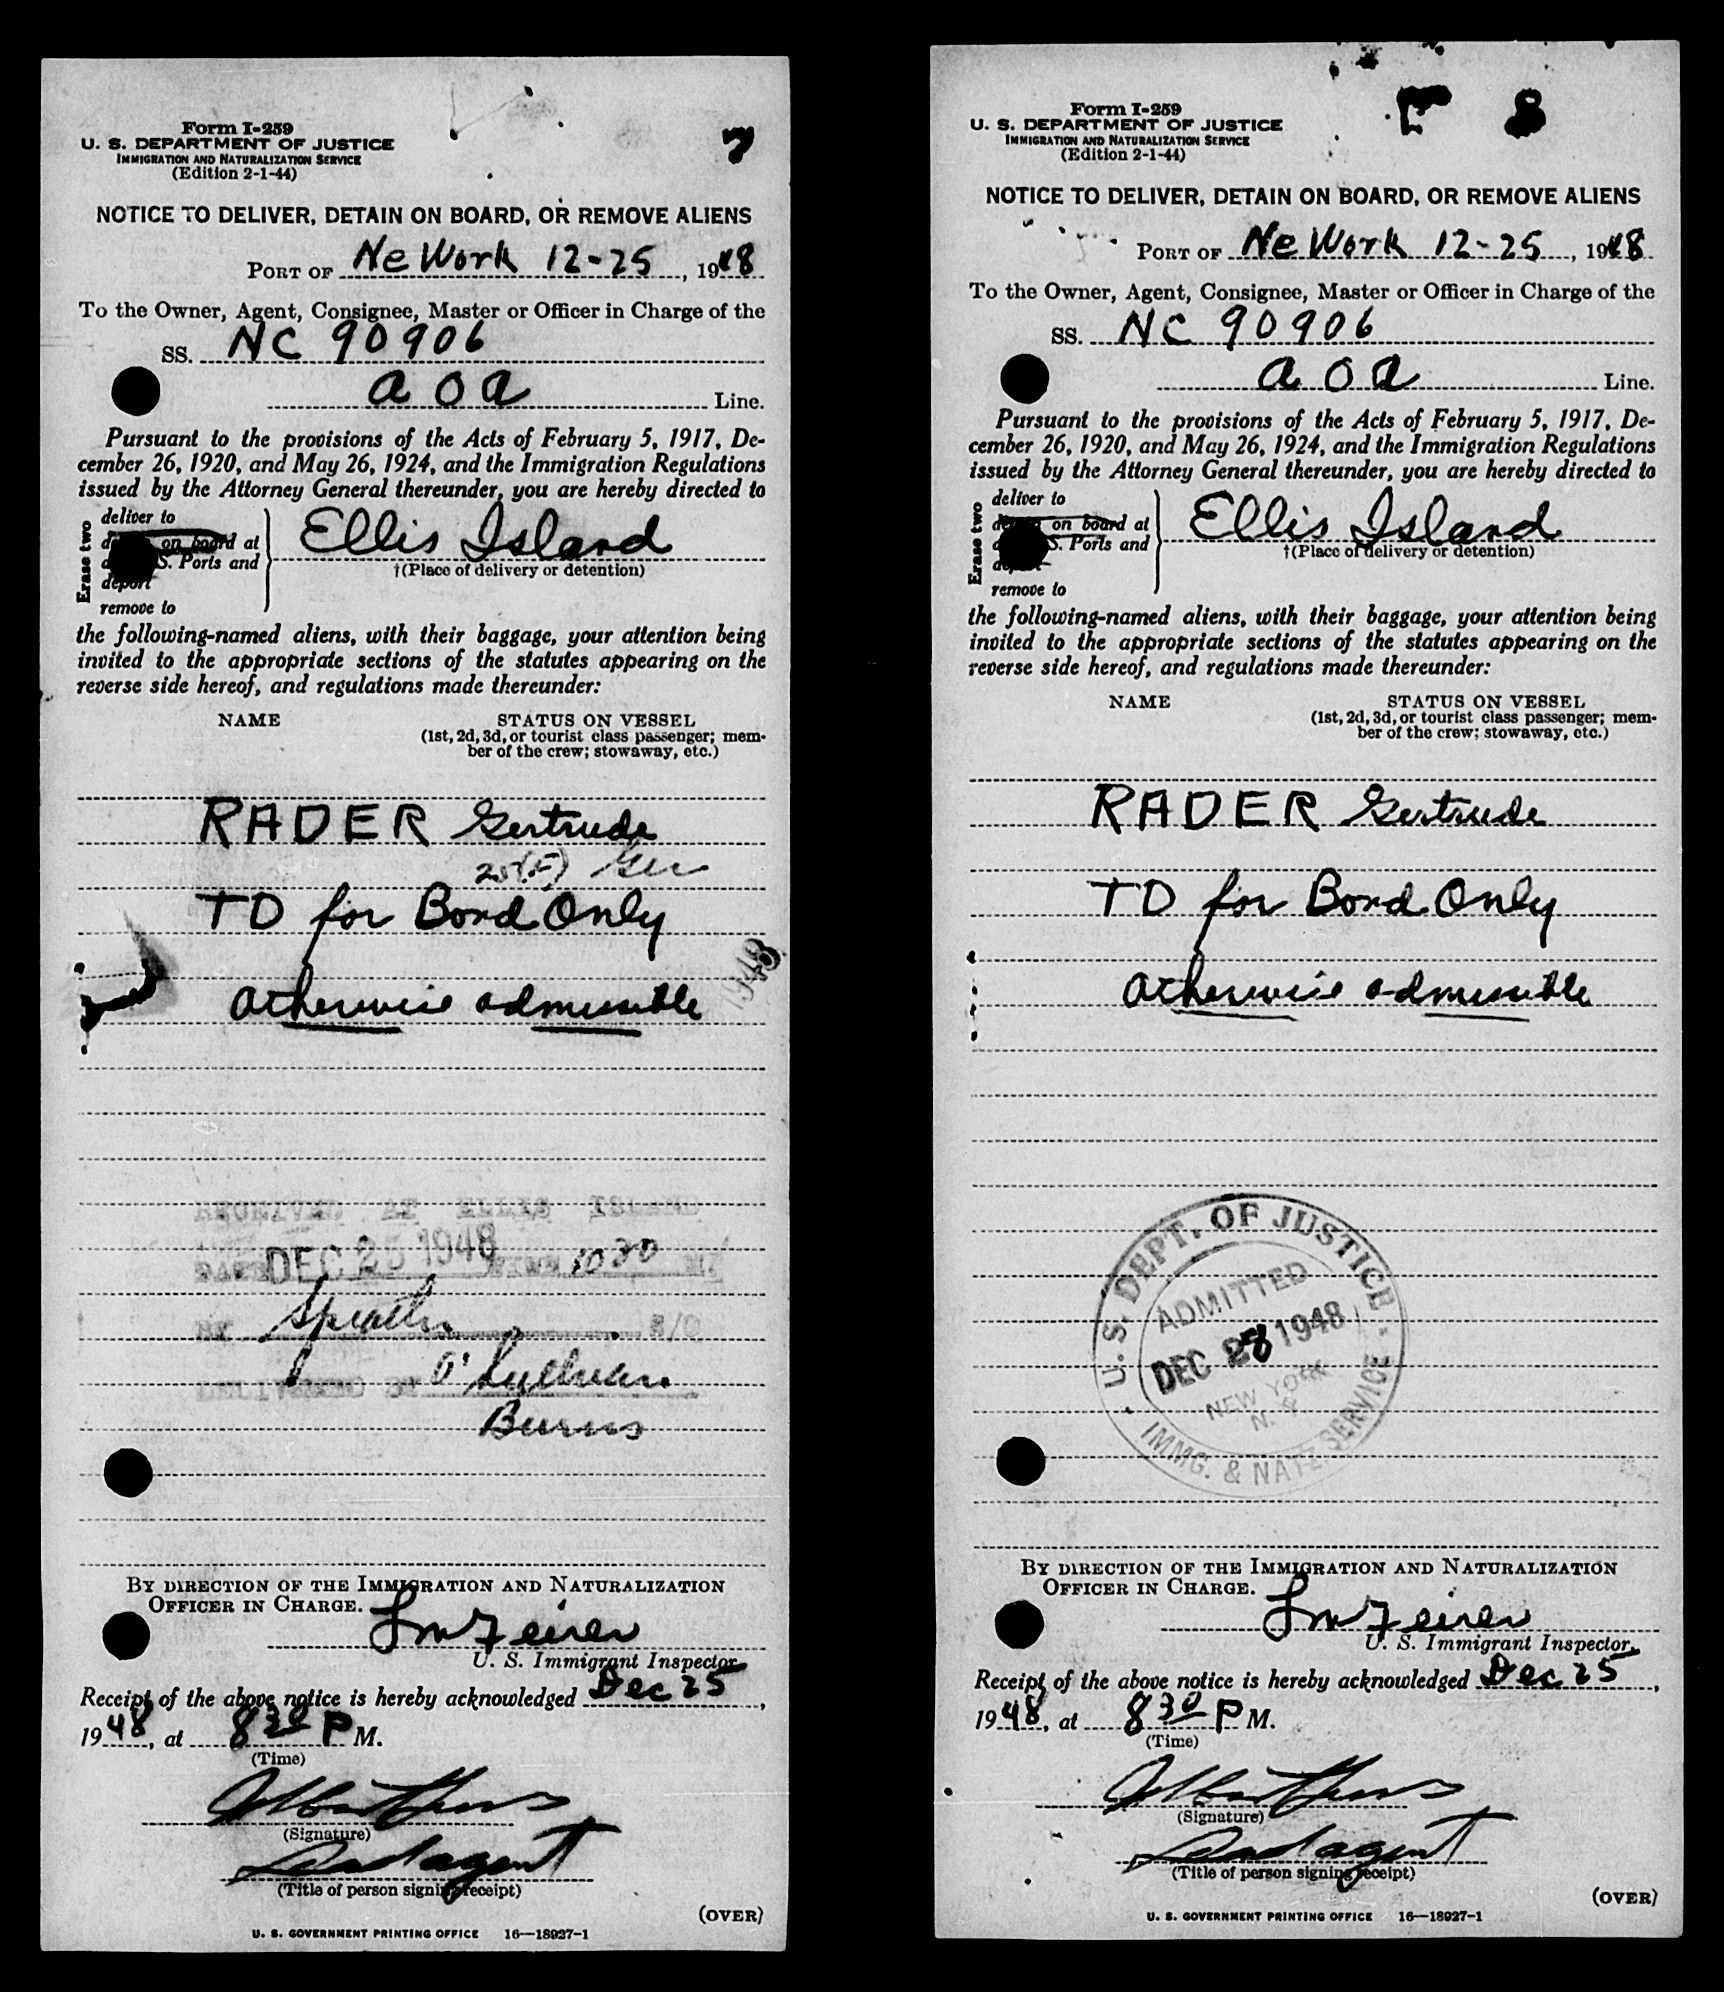 Form I-259
U. S. DEPARTMENT OF JUSTICE
IMMIGRATION AND NATURALIZATION SERVICE
(Edition 2-1-44)
7
NOTICE TO DELIVER, DETAIN ON BOARD, OR REMOVE ALIENS
PORT OF Ne Work 12-25, 1948
To the Owner, Agent, Consignee, Master or Officer in Charge of the
SS. NC 90906
a O a Line.
Pursuant to the provisions of the Acts of February 5, 1917, De-
cember 26, 1920, and May 26, 1924, and the Immigration Regulations
issued by the Attorney General thereunder, you are hereby directed to
Erase two
deliver to
on board at
S. Ports and
deport
remove to
Ellis Island
†(Place of delivery or detention)
the following-named aliens, with their baggage, your attention being
invited to the appropriate sections of the statutes appearing on the
reverse side hereof, and regulations made thereunder:
NAME
STATUS ON VESSEL
(1st, 2d, 3d, or tourist class passenger; mem-
ber of the crew; stowaway, etc.)
RADER Gertrude
25(F) Ger
TD for Bond Only
1948
otherwise admissible
RECEIVED AT ELLIS ISLAND
DATE DEC 25 1948 TIME 1030 M.
BY
O'Sullivan
Burns
BY DIRECTION OF THE IMMIGRATION AND NATURALIZATION
OFFICER IN CHARGE.
U. S. Immigrant Inspector.
Receipt of the above notice is hereby acknowledged Dec 25,
1948, at 8 30 P M.
(Time)
(Signature)
agent
(Title of person signing receipt)
(OVER)
U. S. GOVERNMENT PRINTING OFFICE 16—18927-1
Form I-259
U. S. DEPARTMENT OF JUSTICE
IMMIGRATION AND NATURALIZATION SERVICE
(Edition 2-1-44)
8
NOTICE TO DELIVER, DETAIN ON BOARD, OR REMOVE ALIENS
PORT OF Ne Work 12-25, 1948
To the Owner, Agent, Consignee, Master or Officer in Charge of the
SS. NC 90906
a O a Line.
Pursuant to the provisions of the Acts of February 5, 1917, De-
cember 26, 1920, and May 26, 1924, and the Immigration Regulations
issued by the Attorney General thereunder, you are hereby directed to
Erase two
deliver to
on board at
S. Ports and
deport
remove to
Ellis Island
†(Place of delivery or detention)
the following-named aliens, with their baggage, your attention being
invited to the appropriate sections of the statutes appearing on the
reverse side hereof, and regulations made thereunder:
NAME
STATUS ON VESSEL
(1st, 2d, 3d, or tourist class passenger; mem-
ber of the crew; stowaway, etc.)
RADER Gertrude
TD for Bond Only
otherwise admissible
U. S. DEPT. OF JUSTICE
ADMITTED
DEC 28 1948
NEW YORK
N. Y.
IMMG. & NATZ. SERVICE
BY DIRECTION OF THE IMMIGRATION AND NATURALIZATION
OFFICER IN CHARGE.
U. S. Immigrant Inspector.
Receipt of the above notice is hereby acknowledged Dec 25,
1948, at 8 30 P M.
(Time)
(Signature)
agent
(Title of person signing receipt)
(OVER)
U. S. GOVERNMENT PRINTING OFFICE 16—18927-1